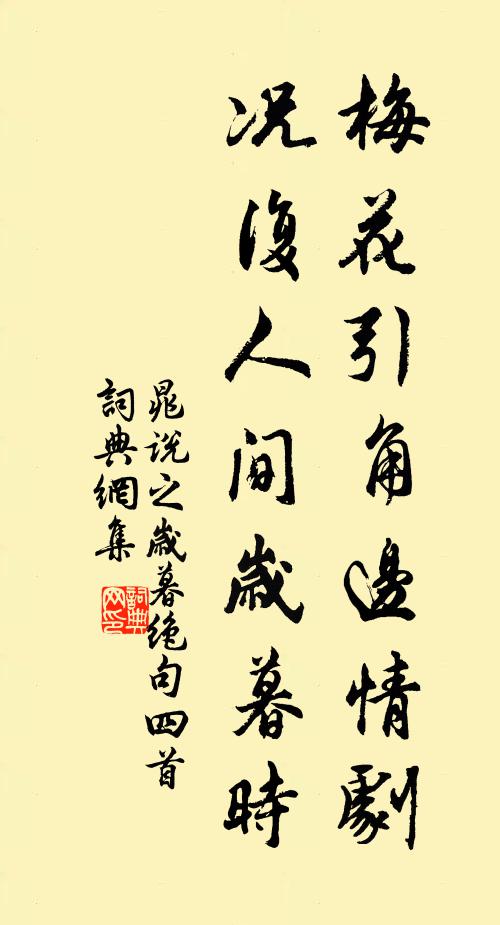 梅花引角邊情劇
況復人間歲暮時
晁說之歲暮絕句四首
詞典網集
詞典网印